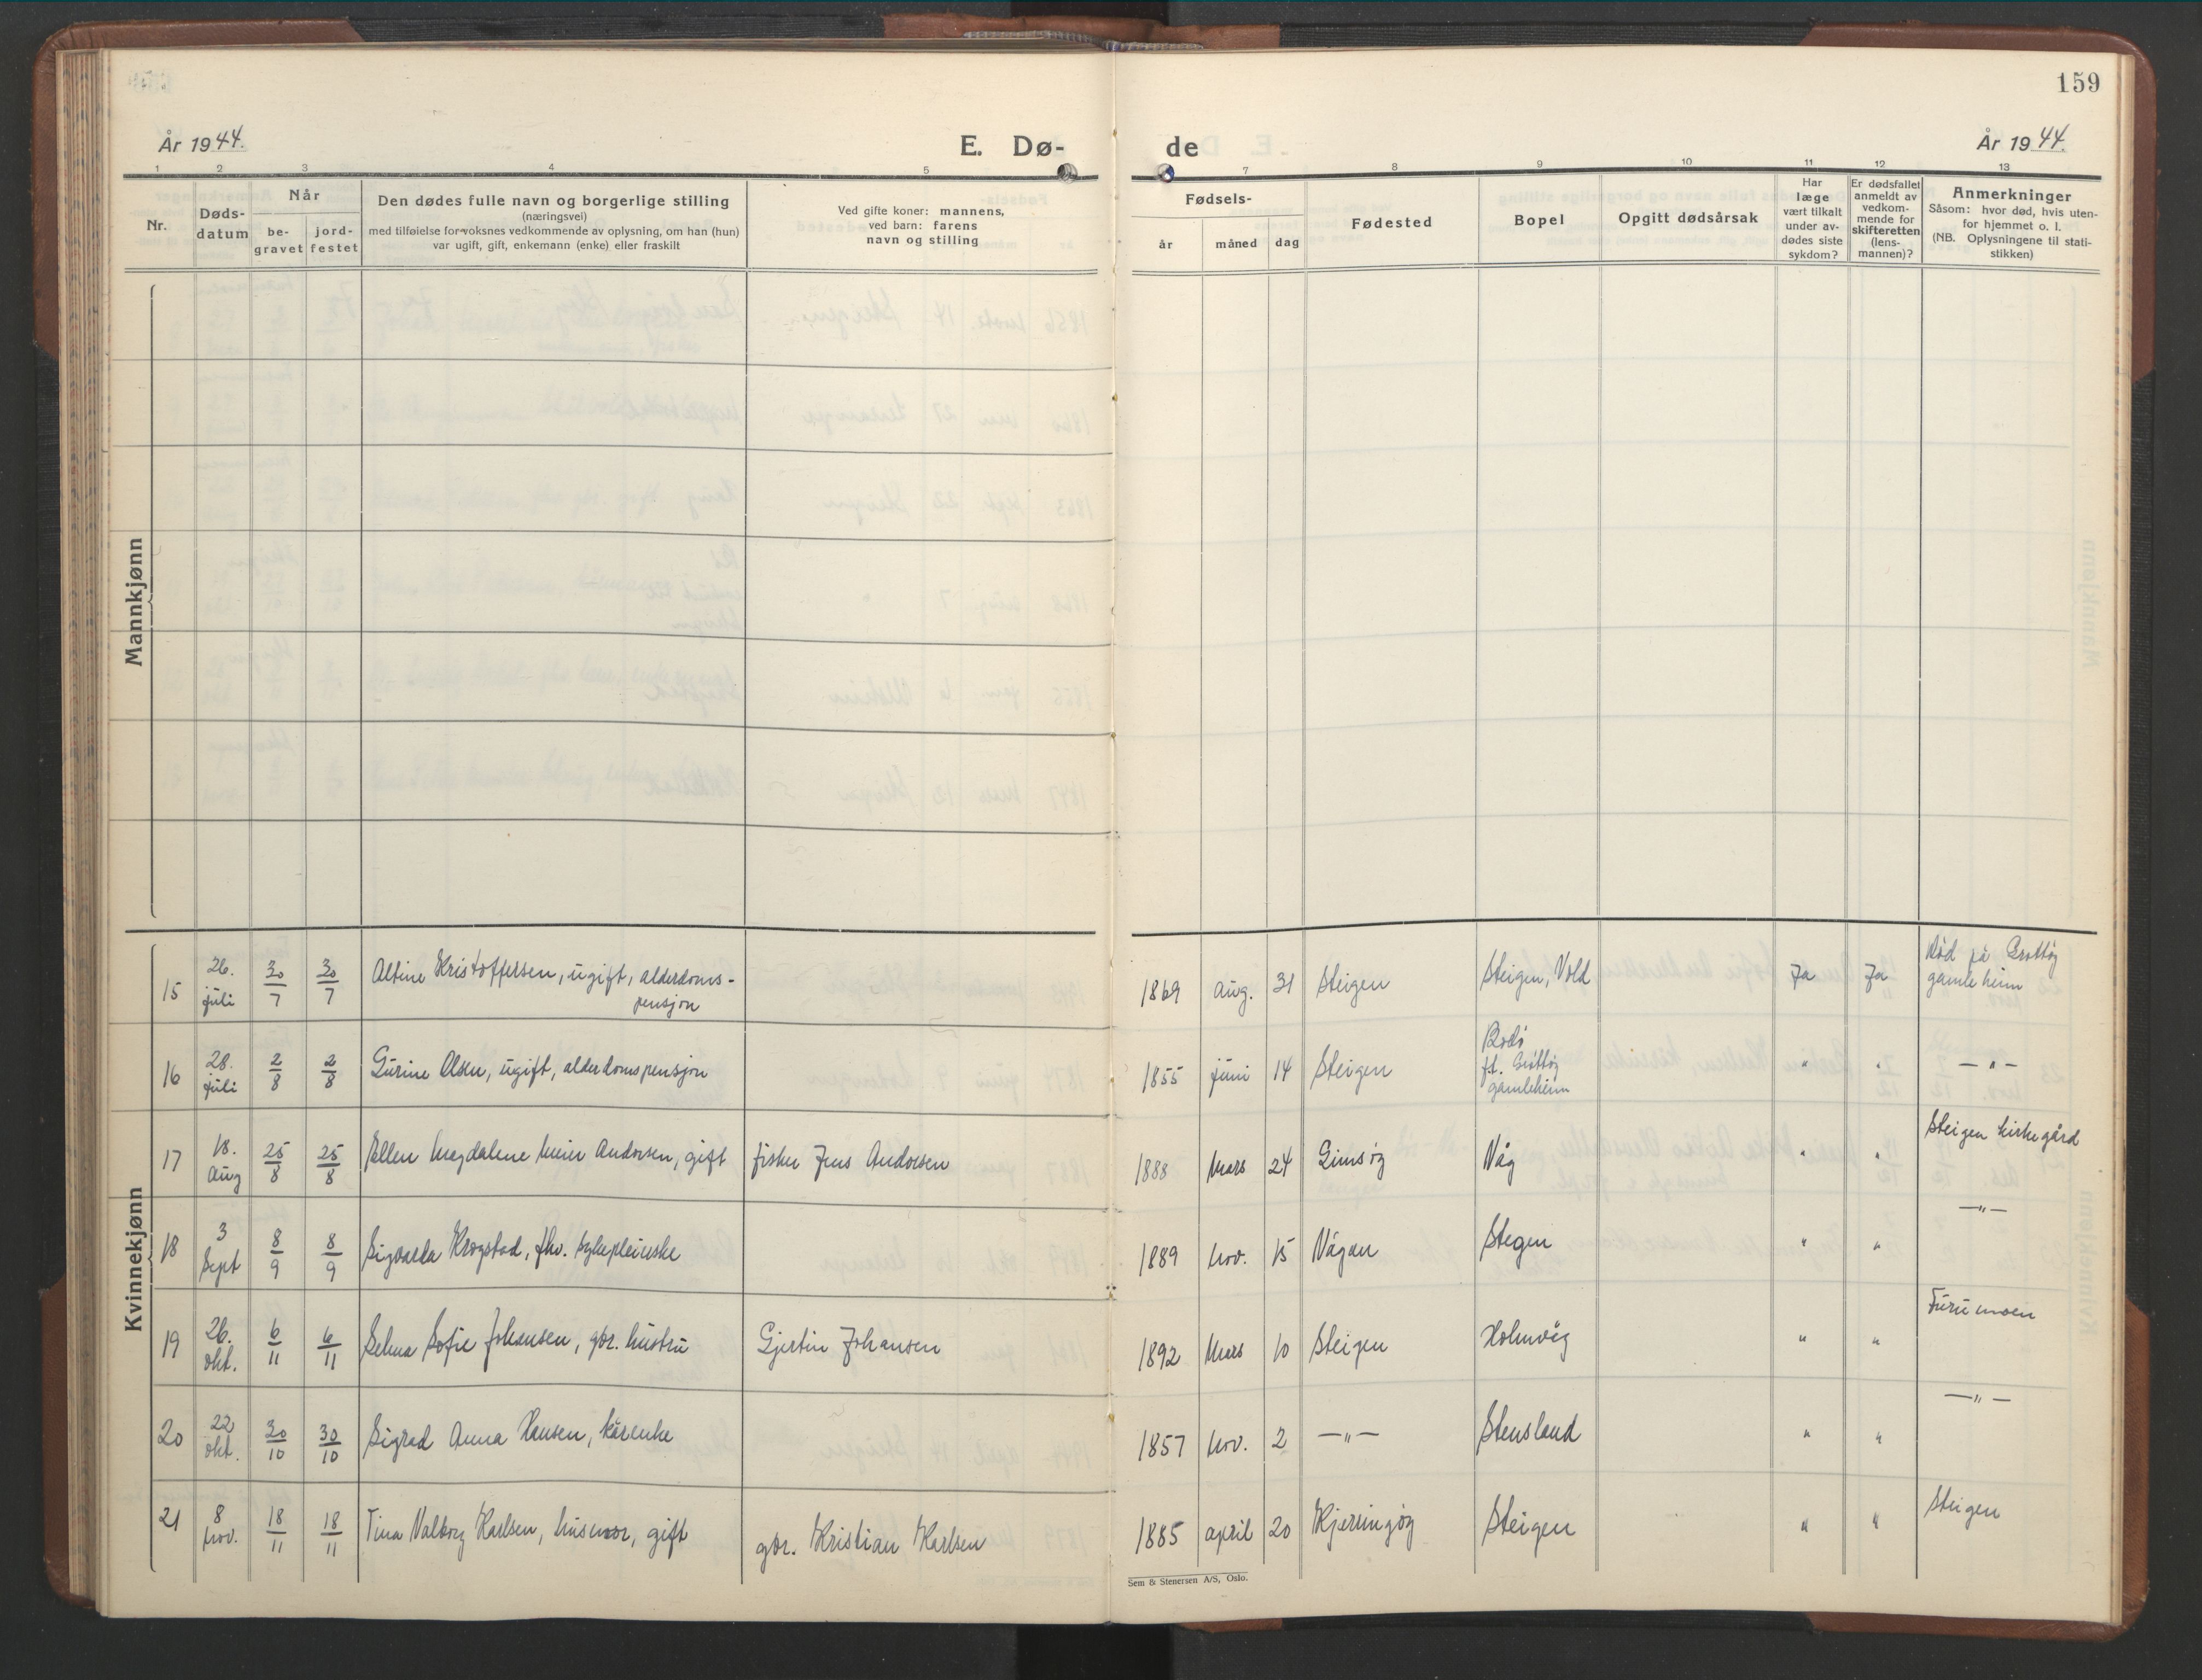 159
År 1944.
E. Dø-
de
År 1944.
1 2 3 4 5 7 8 9 10 11 12 13
Nr.
Døds-
datum
Når
be-
gravet
jord-
festet
Den dødes fulle navn og borgerlige stilling
(næringsvei)
med tilføielse for voksnes vedkommende av oplysning, om han (hun)
var ugift, gift, enkemann (enke) eller fraskilt
Ved gifte koner: mannens,
ved barn: farens
navn og stilling
Fødsels-
år måned dag
Fødested
Bopel
Opgitt dødsårsak
Har
læge
vært tilkalt
under av-
dødes siste
sykdom?
Er dødsfallet
anmeldt av
vedkom-
mende for
skifteretten
(lens-
mannen)?
Anmerkninger
Såsom: hvor død, hvis uten-
for hjemmet o. l.
(NB. Oplysningene til stati-
stikken)
Mannkjønn
Kvinnekjønn
15 26. juli 30/7 30/7 Altine Kristoffersen, ugift, alderdoms-
pensjon
1869 aug. 31 Steigen Steigen, Vold Ja Ja Död på
gamleheim
16 28. juli 2/8 2/8 Gurine Olsen, ugift, alderdomspensjon
1855 juni 14 Steigen Bodö
gamleheim
" " —"—
17 18. Aug 25/8 25/8 Ellen Magdalene Meier Andorsen, gift fisker Jens Andorsen
1888 Mars 24 Gimsöy Våg " " Steigen kirkegård
18 3 Sept 8/9 8/9 Sigvarda Krogstad, fhv. sykepleierske
1889 Nov. 15 Vågan Stegen " " —"—
19 26. okt. 6/11 6/11 Selma Sofie Johansen, gbr. hustru Gjertin Johansen
1892 Mars 10 Steigen Holmvåg " " Furumoen
20 22 okt. 30/10 30/10 Sigrad Anna Hansen, kårenke
1857 Nov. 2 —"— Stensland " " —"—
21 8 Nov. 18/11 18/11 Tina Valborg Karlsen, husmor, gift gbr. Kristian Karlsen
1885 april 20 Kjerringöy Steigen " " Steigen
Sem & Stenersen A/S, Oslo.